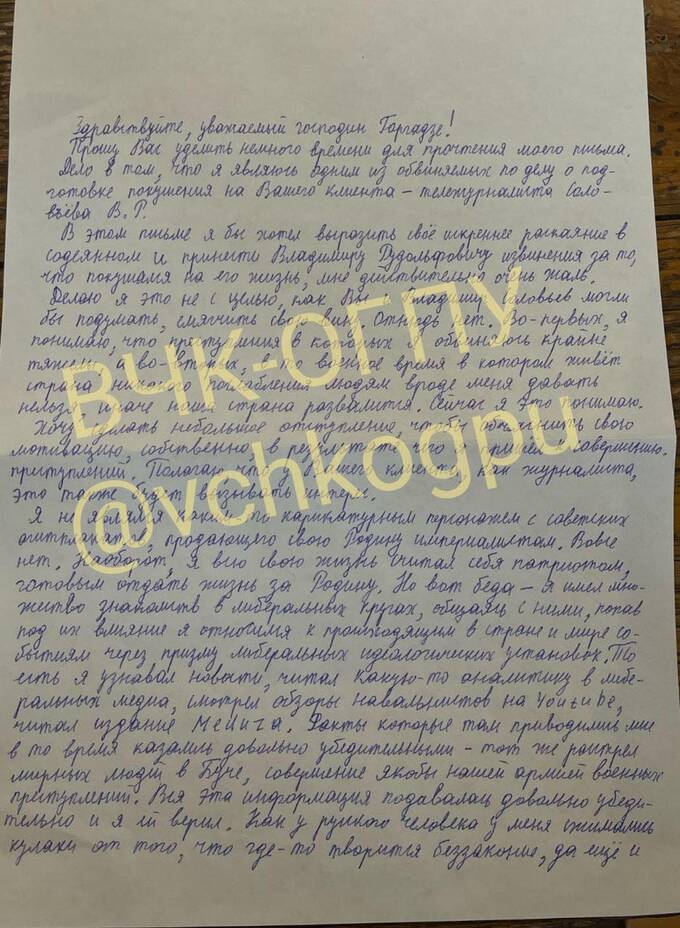 Здравствуйте, уважаемый господин Гаргадзе!
Прошу Вас уделить немного времени для прочтения моего письма.
Дело в том, что я являюсь одним из обвиняемых по делу о под-
готовке покушения на Вашего клиента – тележурналиста Соло-
вьёва В.Р.
В этом письме я бы хотел выразить своё искреннее раскаяние в
содеянном и принести Владимиру Рудольфовичу извинения за то,
что покушался на его жизнь, мне действительно очень жаль.
Делаю я это не с целью, как Вы и Владимир Соловьев могли
бы подумать, смягчить свою вину. Отнюдь нет. Во-первых, я
понимаю, что преступления в которых я обвиняюсь крайне
тяжелы, а во-вторых, – то военное время в котором живёт
страна никакого послабления людям вроде меня давать
нельзя, иначе наша страна развалится. Сейчас я это понимаю.
Хочу сделать небольшое отступление, чтобы объяснить свою
мотивацию, собственно, в результате чего я пришел к совершению
приступлений. Полагаю что у Вашего клиента, как журналиста,
это также будет вызывать интерес.
Я не являлся каким-то карикатурным персонажем с советских
агитплакатов, продающего свою Родину империалистам. Вовсе
нет. Наоборот, я всю свою жизнь считал себя патриотом,
готовым отдать жизнь за Родину. Но вот беда – я имел мно-
жество знакомств в либеральных кругах, общаясь с ними, попав
под их влияние я относился к происходящим в стране и мире со-
бытиям через призму либеральных идеологических установок. То
есть я узнавал новости, читал какую-то аналитику в либе-
ральных медиа, смотрел обзоры навальнистов на Youtube,
читал издание Meduza. Факты которые там приводились мне
в то время казались довольно убедительными – тот же расстрел
мирных людей в Буче, совершение якобы нашей армией военных
приступлений. Вся эта информация подавалась довольно убеди-
тельно и я ей верил. Как у русского человека у меня сжимались
кулаки от того, что где-то творится беззаконие, да ещё и
ВЧК-ОГПУ
@vchkogpu